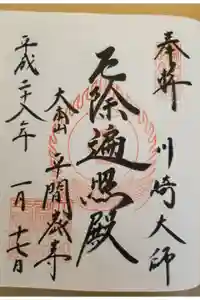 奉拝
川崎大師
厄除遍照殿
大本山
平間教寺
平成二十八年
一月十七日